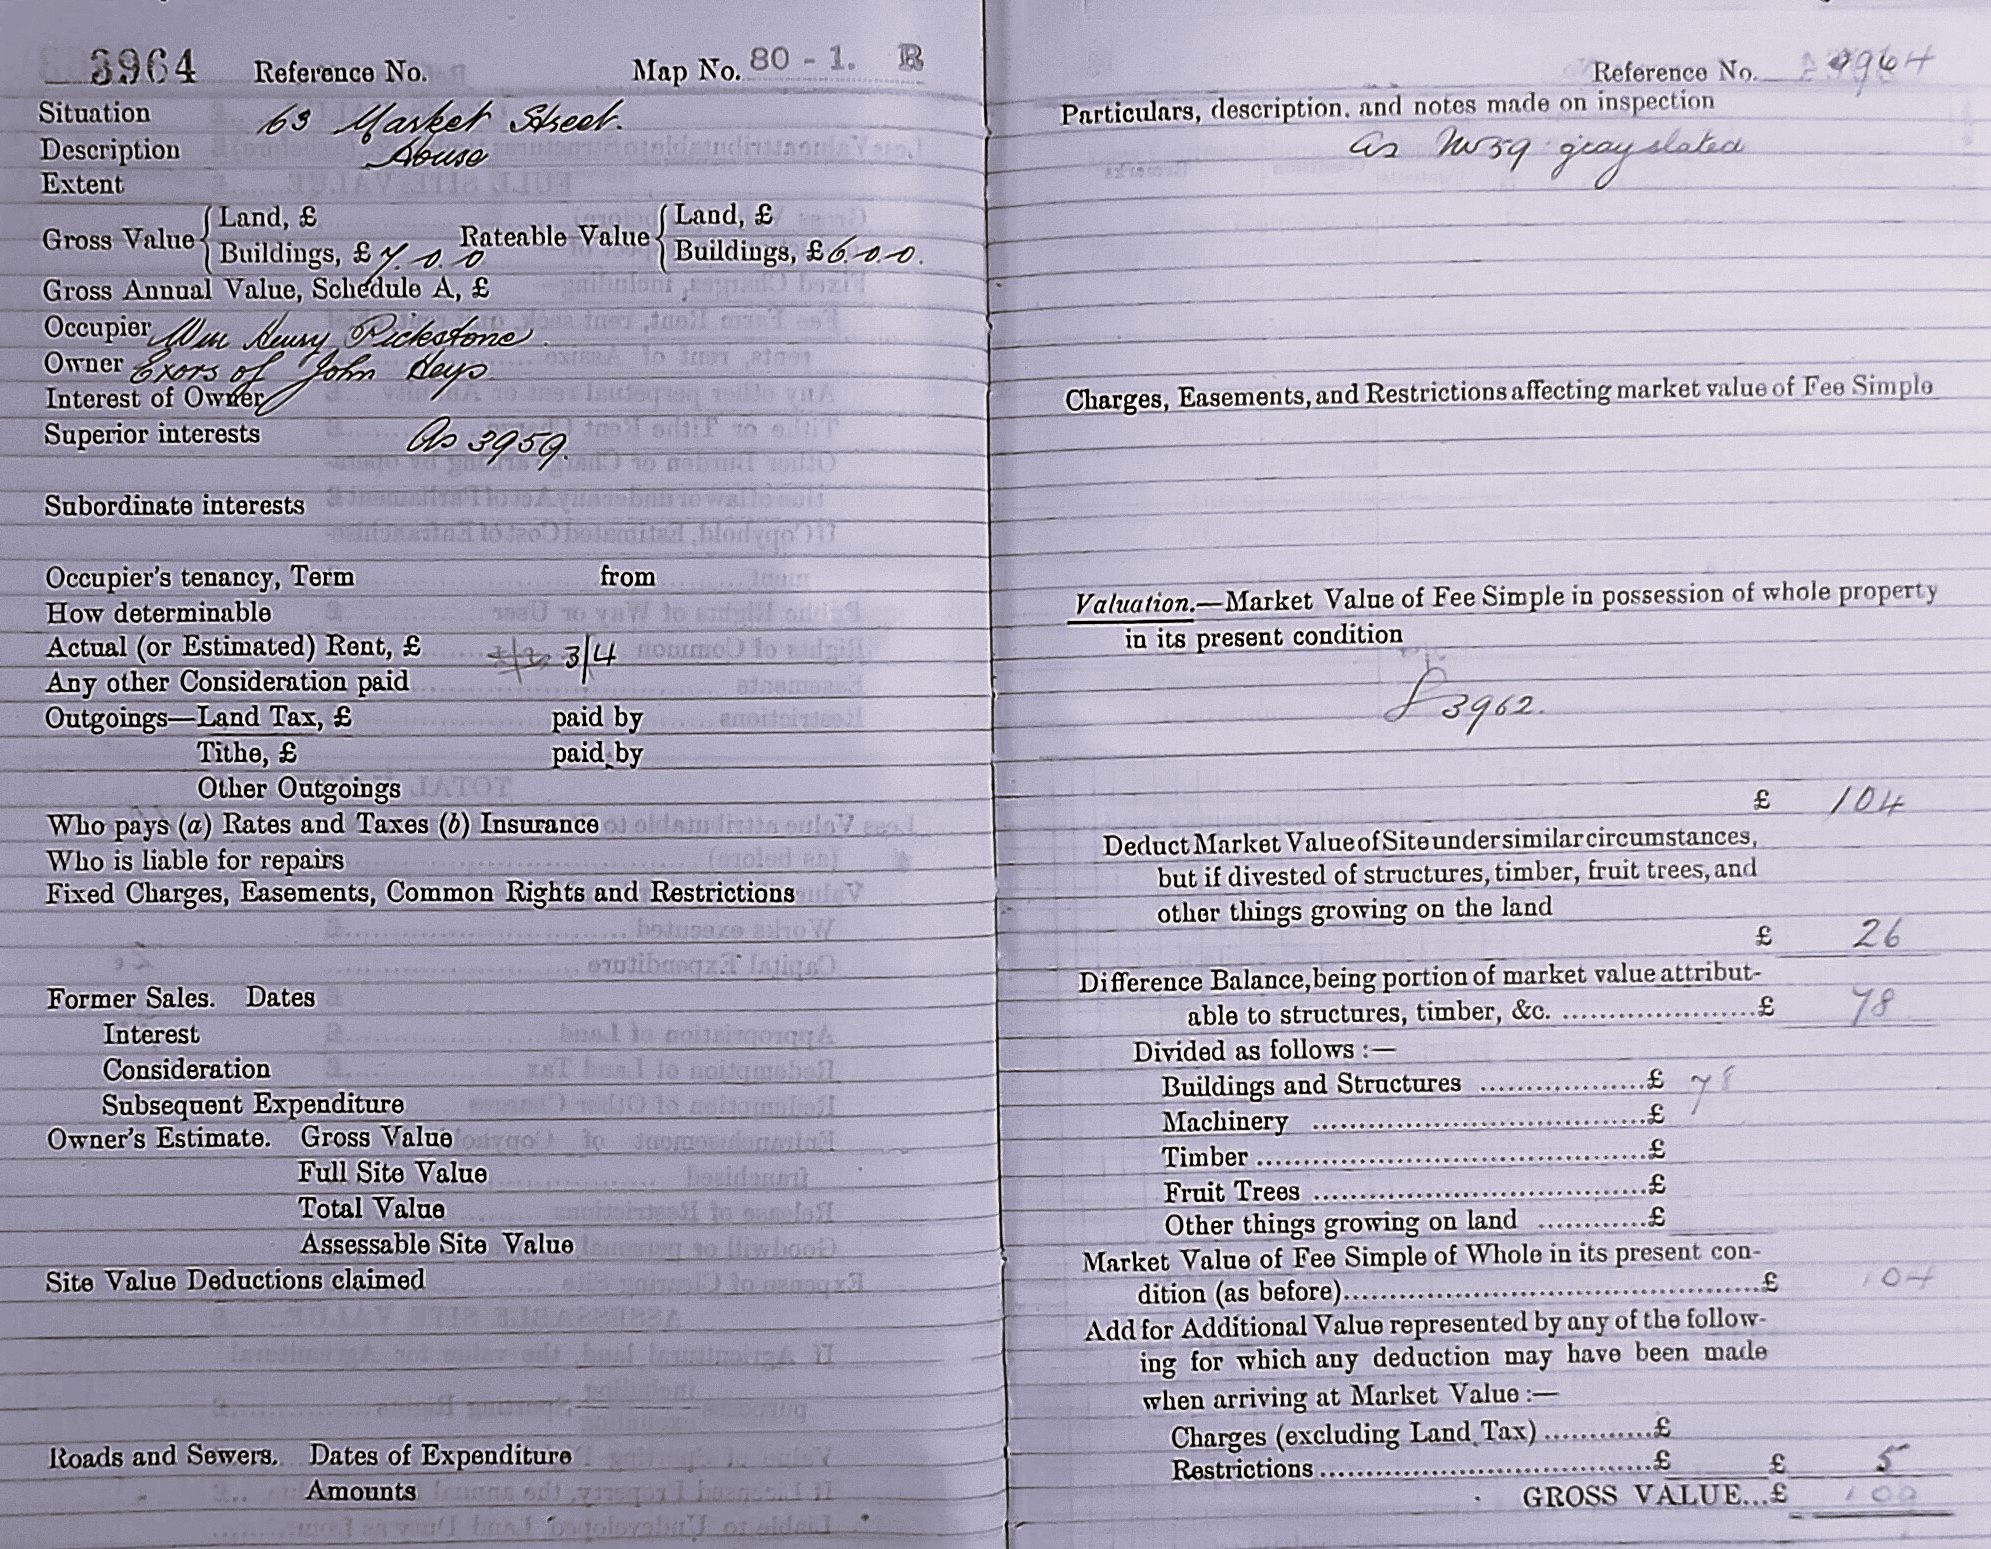 3964 Reference No. Map No. 80 - 1. B
Situation 63 Market Street.
Description House
Extent
Gross Value { Land, £ Rateable Value { Land, £
Buildings, £ 7. 0. 0 Buildings, £ 6. 0. 0.
Gross Annual Value, Schedule A, £
Occupier Wm Henry Pickstone.
Owner Exors of John Heys.
Interest of Owner
Superior interests As 3959.
Subordinate interests
Occupier's tenancy, Term from
How determinable
Actual (or Estimated) Rent, £ 3/4
Any other Consideration paid
Outgoings—Land Tax, £ paid by
Tithe, £ paid by
Other Outgoings
Who pays (a) Rates and Taxes (b) Insurance
Who is liable for repairs
Fixed Charges, Easements, Common Rights and Restrictions
Former Sales. Dates
Interest
Consideration
Subsequent Expenditure
Owner's Estimate. Gross Value
Full Site Value
Total Value
Assessable Site Value
Site Value Deductions claimed
Roads and Sewers. Dates of Expenditure
Amounts
Reference No. 3964
Particulars, description, and notes made on inspection
as 59 gray slated
Charges, Easements, and Restrictions affecting market value of Fee Simple
Valuation.—Market Value of Fee Simple in possession of whole property
in its present condition
3962.
£ 104
Deduct Market Value of Site under similar circumstances,
but if divested of structures, timber, fruit trees, and
other things growing on the land
£ 26
Difference Balance, being portion of market value attribut-
able to structures, timber, &c. .....................£ 78
Divided as follows :—
Buildings and Structures ..................£ 78
Machinery .....................................£
Timber ...........................................£
Fruit Trees .....................................£
Other things growing on land ............£
Market Value of Fee Simple of Whole in its present con-
dition (as before)..............................................£ 104
Add for Additional Value represented by any of the follow-
ing for which any deduction may have been made
when arriving at Market Value :—
Charges (excluding Land Tax) ............£
Restrictions ....................................£ £ 5
GROSS VALUE...£